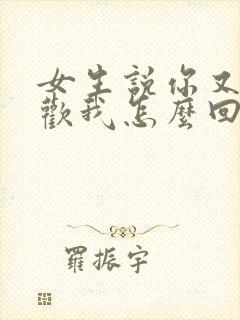 女生說你又
歡我怎麼回
羅振宇